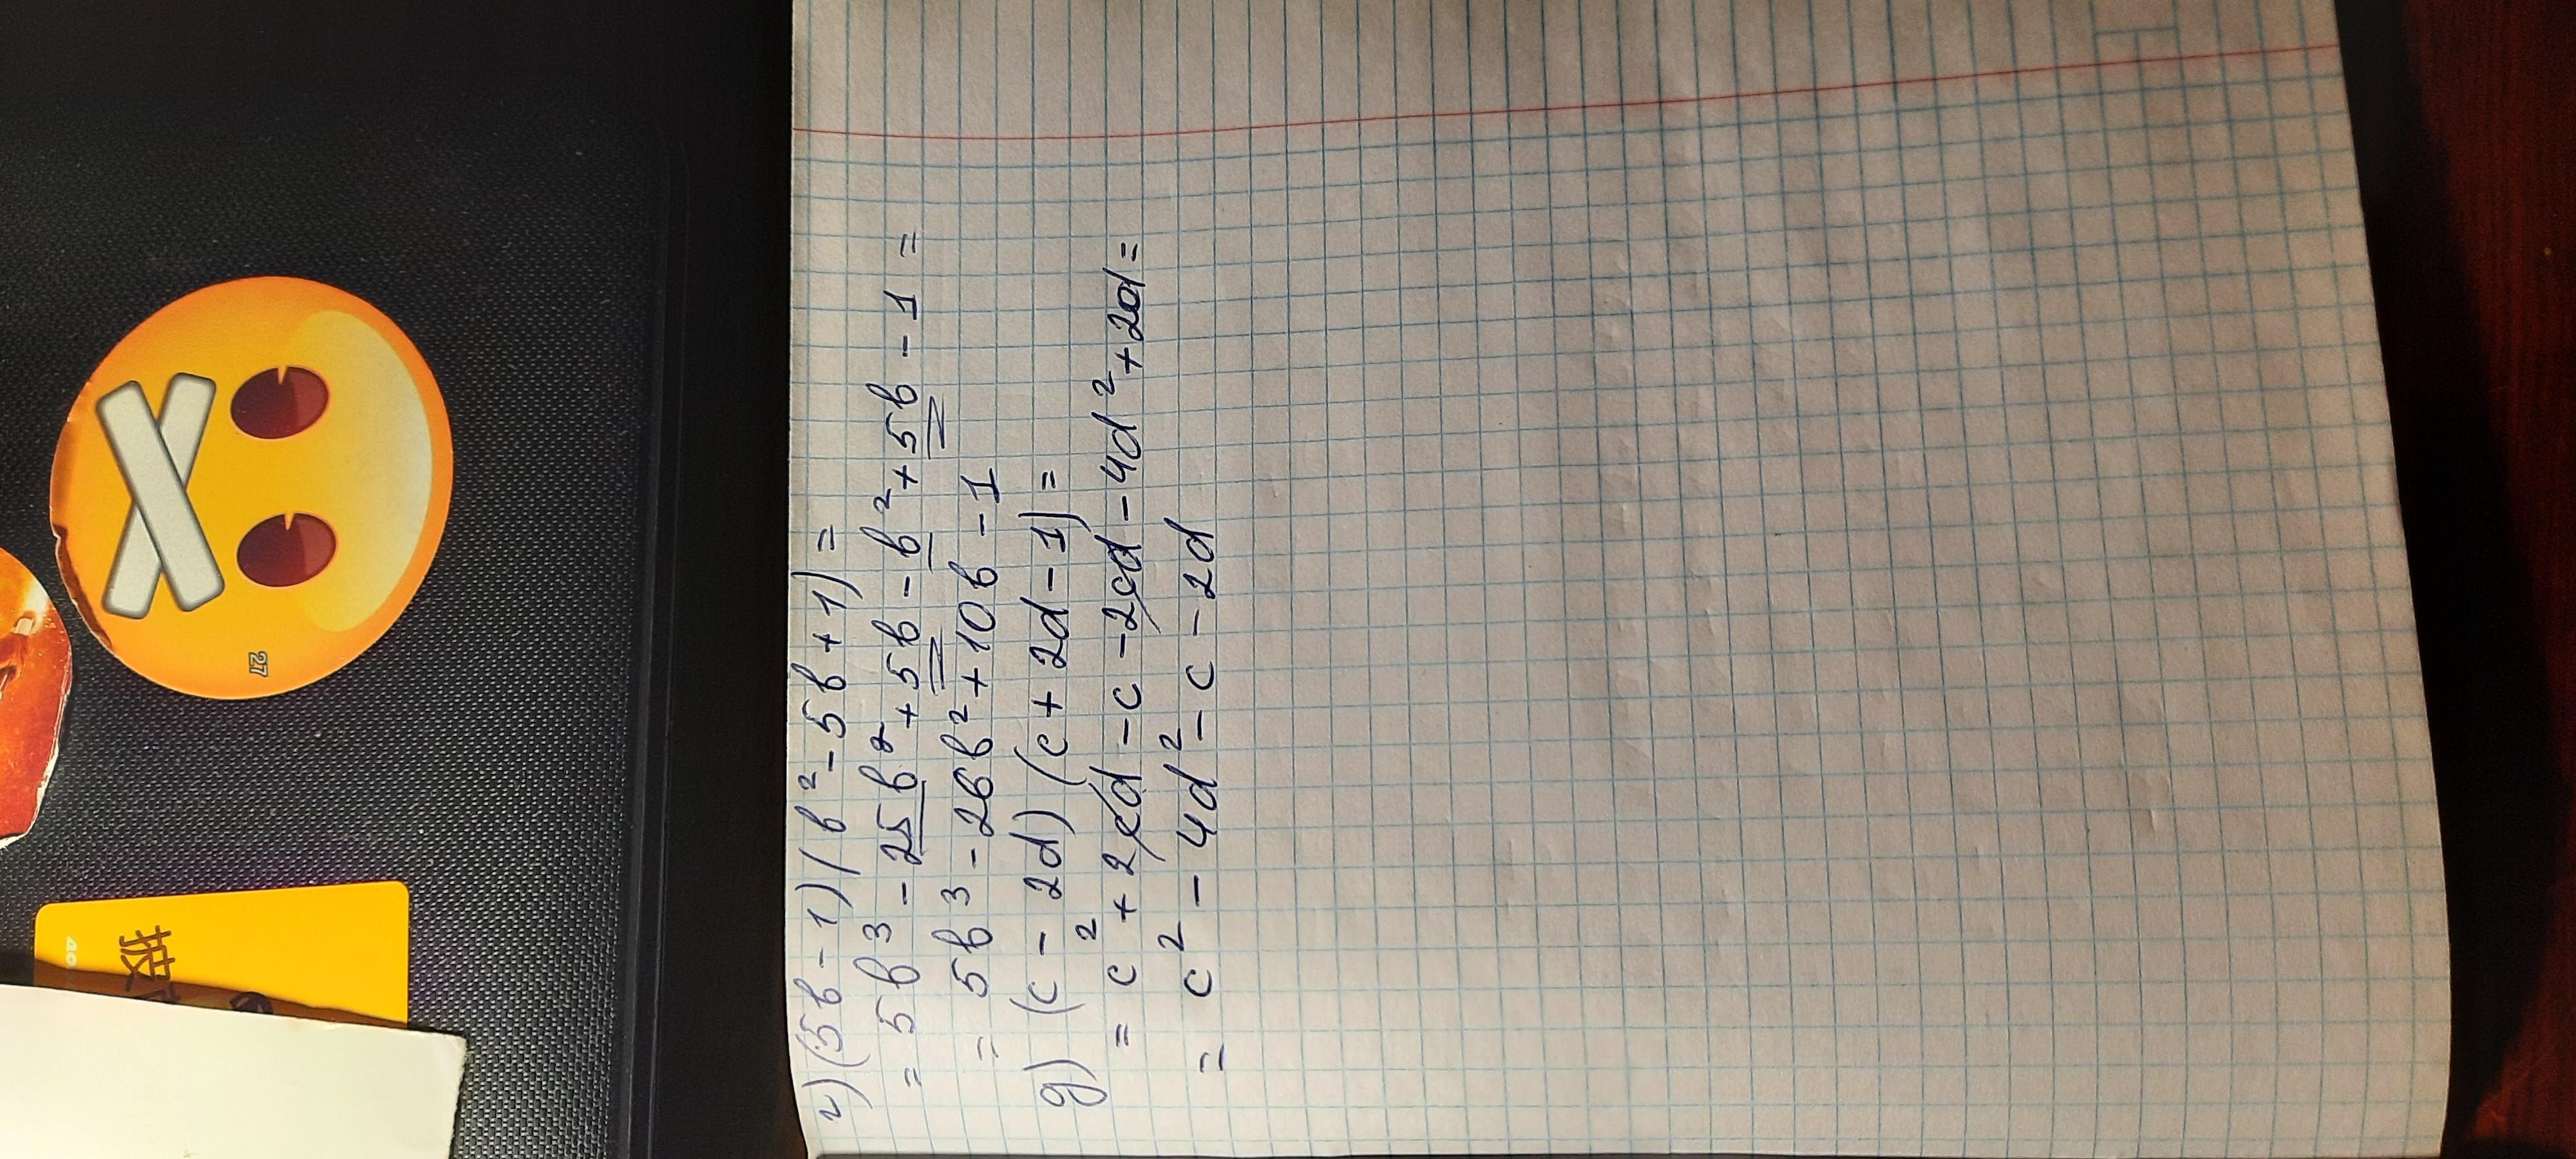 г) (5b - 1) (b² - 5b + 1) =
= 5b³ - 25b² + 5b - b² + 5b - 1 =
= 5b³ - 26b² + 10b - 1
д) (c - 2d) (c + 2d - 1) =
= c² + 2cd - c - 2cd - 4d² + 2d =
= c² - 4d² - c - 2d
27